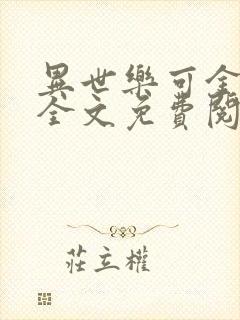 異世樂可全
全文免費閱
莊立權